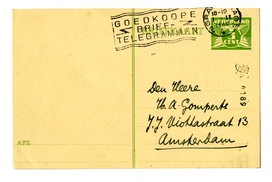 GOEDKOOPE
BRIEF-
TELEGRAMMEN
NEDERLAND
CENT
Den Heere
H. A. Gomperts
J. J. Viottastraat 13
Amsterdam